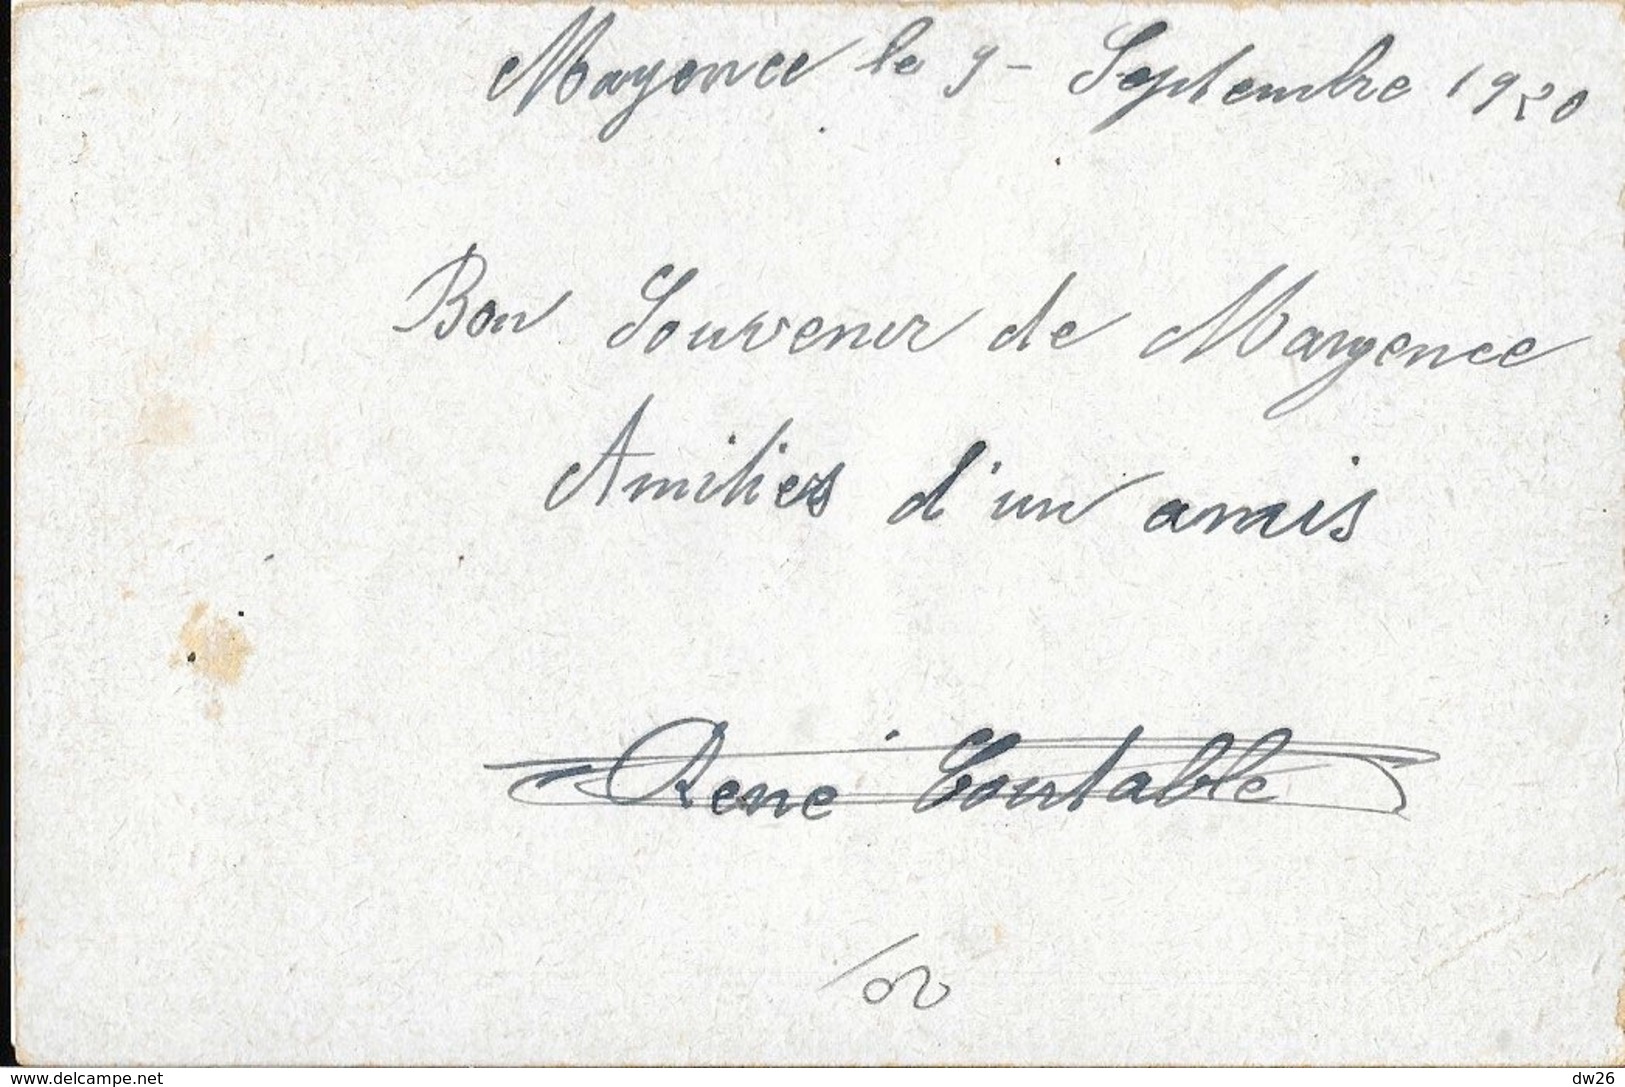 Mayence le 9 - Septembre 1920
Bon Souvenir de Mayence
Amitiés d'un amis
René Contable
www.delcampe.net
dw26